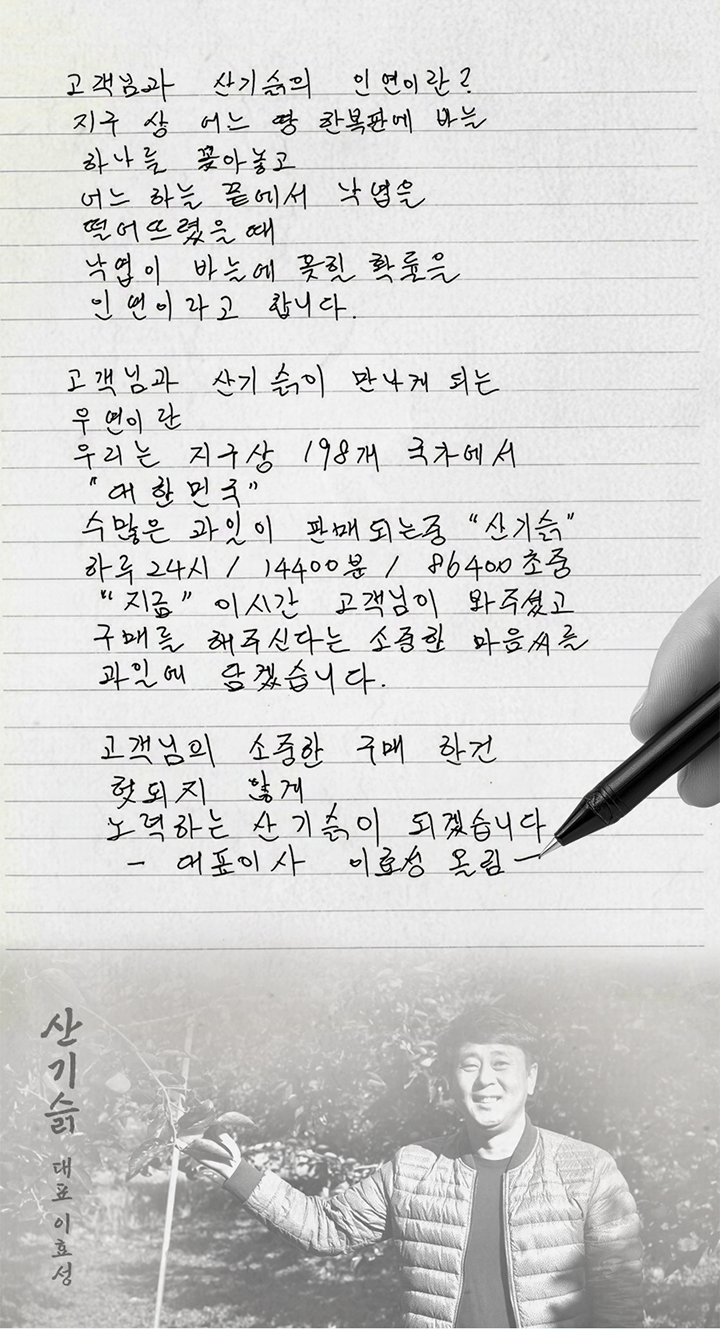 고객님과 산기슭의 인연이란?
지구 상 어느 땅 한복판에 바늘
하나를 꽂아놓고
어느 하늘 끝에서 낙엽을
떨어뜨렸을 때
낙엽이 바늘에 꽂힐 확률을
인연이라고 합니다.
고객님과 산기슭이 만나게 되는
우연이란
우리는 지구상 198개 국가에서
"대한민국"
수많은 과일이 판매되는중 "산기슭"
하루 24시 / 14400분 / 86400초중
"지금" 이시간 고객님이 와주셨고
구매를 해주신다는 소중한 마음씨를
과일에 담겠습니다.
고객님의 소중한 구매 한건
헛되지 않게
노력하는 산기슭이 되겠습니다
- 대표이사 이효성 올림 -
산기슭 대표 이효성